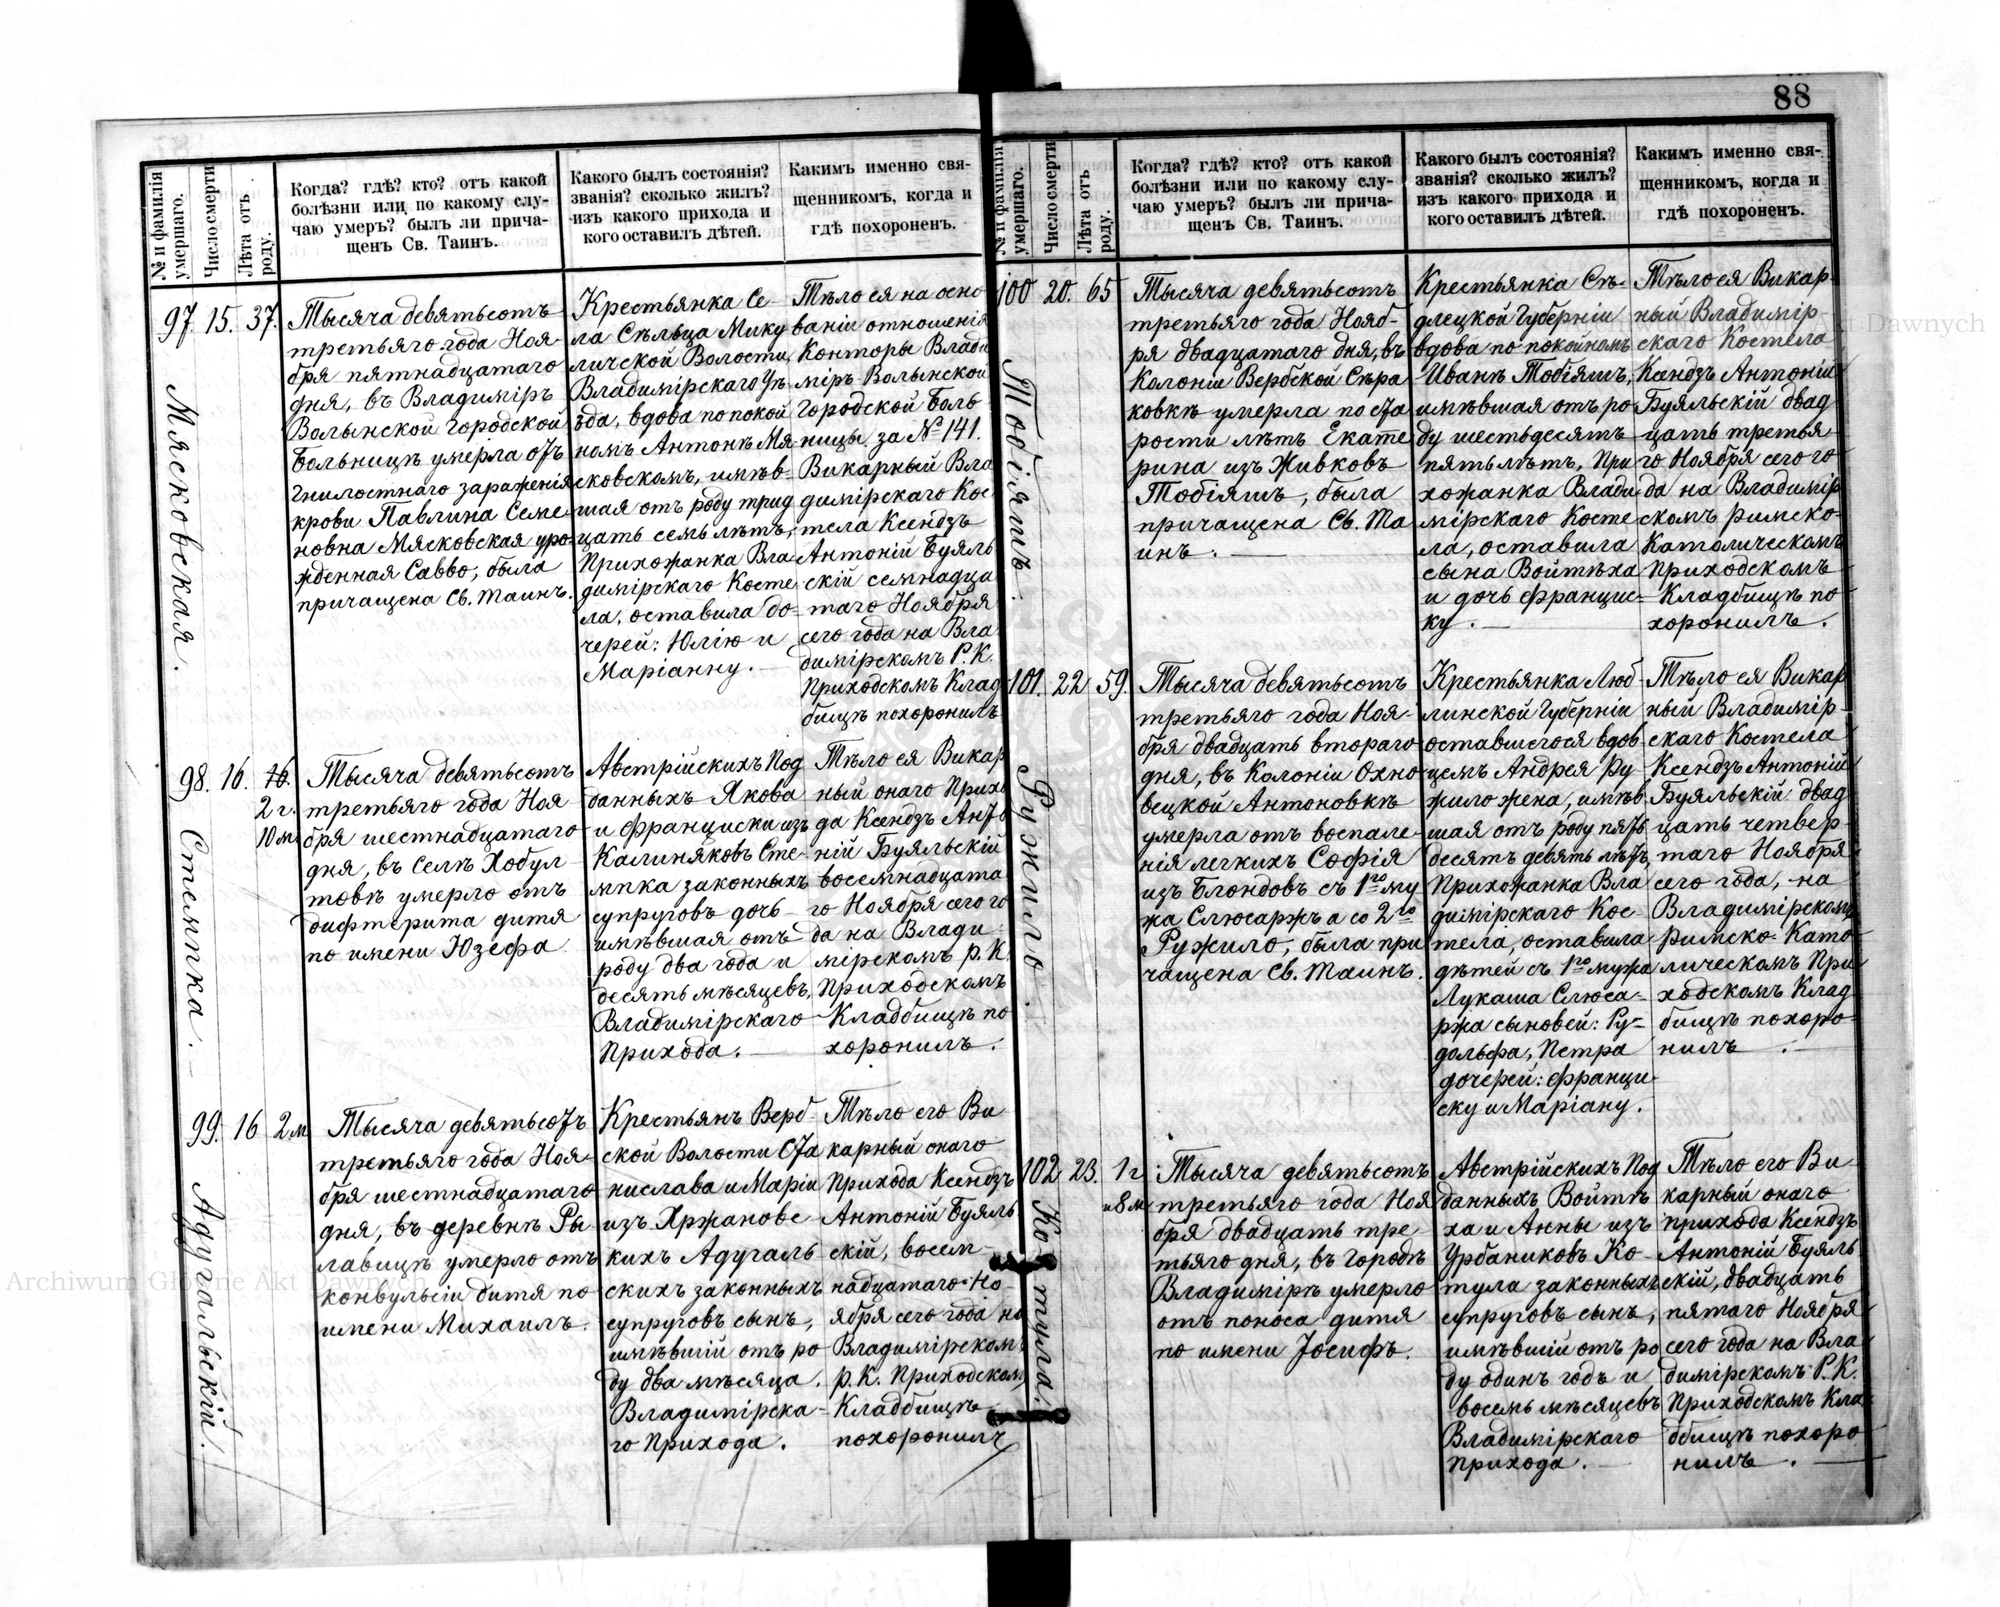 88
№ и фамилія умершаго.
Число смерти
Лѣта отъ роду.
Когда? гдѣ? кто? отъ какой
болѣзни или по какому слу-
чаю умеръ? былъ ли прича-
щенъ Св. Таинъ.
Какого былъ состоянія?
званія? сколько жилъ?
изъ какого прихода и
кого оставилъ дѣтей.
Какимъ именно свя-
щенникомъ, когда и
гдѣ похороненъ.
97. 15. 37.
Мясковская.
Тысяча девятьсотъ
третьяго года Ноя-
бря пятнадцатаго
дня, въ Владиміръ
Волынской городской
больницѣ умерла отъ
гнилостнаго зараженія
крови Павлина Семе-
новна Мясковская уро-
жденная Савво, была
причащена Св. Таинъ.
Крестьянка Се-
ла Сѣльца Мику
личской Волости,
Владимірскаго Уѣ-
зда, вдова по покой
номъ Антонѣ Мя-
сковскомъ, имѣв-
шая отъ роду трид
цать семь лѣтъ,
Прихожанка Вла
димірскаго Косте
ла, оставила до-
черей: Юлію и
Маріанну.
Тѣло ея на осно
ваніи отношенія
Конторы Влади
міръ-Волынской
городской боль
ницы за № 141.
Викарный Вла
димірскаго Кос-
тела Ксендзъ
Антоній Буяль
скій семнадца
таго Ноября
сего года на Вла
димірскомъ Р. К.
Приходскомъ Клад
бищѣ похоронилъ
98. 16. 16.
2 г.
10 м
Стемпка.
Тысяча девятьсотъ
третьяго года Ноя
бря шестнадцатаго
дня, въ селѣ Хобул
товѣ умерло отъ
дифтерита дитя
по имени Юзефа
Австрійскихъ Под
данныхъ Якова
и Франциски изъ
Калиняковъ Сте-
мпка законныхъ
супруговъ дочь
имѣвшая отъ
роду два года и
десять мѣсяцевъ,
Владимірскаго
Прихода.
Тѣло ея Викар
ный онаго Прихо
да Ксендзъ Анто
ній Буяльскій
восемнадцата
го Ноября сего го
да на Влади-
мірскомъ р. К.
Приходскомъ
Кладбищѣ по
хоронилъ.
99. 16 2 м
Адугальскій.
Тысяча девятьсотъ
третьяго года Ноя-
бря шестнадцатаго
дня, въ деревнѣ Ры
лавицѣ умерло отъ
конвульсіи дитя по
имени Михаилъ.
Крестьянъ Верб-
ской Волости Ста
нислава и Маріи
изъ Хржановс-
кихъ Адугаль
скихъ законныхъ
супруговъ сынъ,
имѣвшій отъ ро
ду два мѣсяца.
Владимірска-
го Прихода.
Тѣло его Ви
карный онаго
Прихода Ксендзъ
Антоній Буяль
скій, восем-
надцатаго Но-
ября сего года на
Владимірскомъ
р. К. Приходскомъ
Кладбищѣ
похоронилъ
№ и фамилія умершаго.
Число смерти
Лѣта отъ роду.
Когда? гдѣ? кто? отъ какой
болѣзни или по какому слу-
чаю умеръ? былъ ли прича-
щенъ Св. Таинъ.
Какого былъ состоянія?
званія? сколько жилъ?
изъ какого прихода и
кого оставилъ дѣтей.
Какимъ именно свя-
щенникомъ, когда и
гдѣ похороненъ.
100 20. 65
Тобіяшъ.
Тысяча девятьсотъ
третьяго года Нояб-
ря двадцатаго дня, въ
Колоніи Вербской Сѣра
ковкѣ умерла по ста
рости лѣтъ Екате
рина изъ Живковъ
Тобіяшъ, была
причащена Св. Та
инъ.
Крестьянка Сѣ-
длецкой Губерніи
вдова по покойномъ
Иванѣ Тобіяшъ,
имѣвшая отъ ро
ду шестьдесятъ
пять лѣтъ, При
хожанка Влади
мірскаго Косте
ла, оставила
сына Войтѣха
и дочь Францис-
ку.
Тѣло ея Викар
ный Владимір-
скаго Костела
Ксендзъ Антоній
Буяльскій двад
цать третья
го Ноября сего го
да на Владимір
скомъ римско-
Католическомъ
Приходскомъ
Кладбищѣ по
хоронилъ.
101. 22 59.
Ружило.
Тысяча девятьсотъ
третьяго года Ноя-
бря двадцать втораго
дня, въ Колоніи Охно
вецкой Антоновкѣ
умерла отъ воспале-
нія легкихъ Софія
изъ Блондовъ съ 1го му
жа Слюсаржъ а со 2го
Ружило, была при
чащена Св. Таинъ.
Крестьянка Люб-
линской Губерніи
оставшегося вдов
цемъ Андрея Ру
жило жена, имѣв
шая отъ роду пять
десятъ девять лѣтъ,
Прихожанка Вла
димірскаго Кос-
тела, оставила
дѣтей съ 1го мужа
Лукаша Слюса-
ржа сыновей: Ру-
дольфа, Петра
дочерей: Франци-
ску и Маріану.
Тѣло ея Викар
ный Владимір-
скаго Костела
Ксендзъ Антоній
Буяльскій двад
цать четвер-
таго Ноября
сего года, на
Владимірскомъ
Римско-Като-
лическомъ При
ходскомъ Клад
бищѣ похоро-
нилъ.
102 23. 1 г
и 8 м
Котула.
Тысяча девятьсотъ
третьяго года Ноя
бря двадцать тре
тьяго дня, въ городѣ
Владимірѣ умерло
отъ поноса дитя
по имени Іосифъ.
Австрійскихъ Под
данныхъ Войтѣ
ха и Анны изъ
Урбаниковъ Ко-
тула законныхъ
супруговъ сынъ,
имѣвшій отъ ро
ду одинъ годъ и
восемь мѣсяцевъ
Владимірскаго
Прихода.
Тѣло его Ви
карный онаго
прихода Ксендзъ
Антоній Буяль
скій, двадцать
пятаго Ноября
сего года на Вла-
димірскомъ Р. К.
Приходскомъ Кла
дбищѣ похоро
нилъ.
Archiwum Główne Akt Dawnych
Archiwum Główne Akt Dawnych